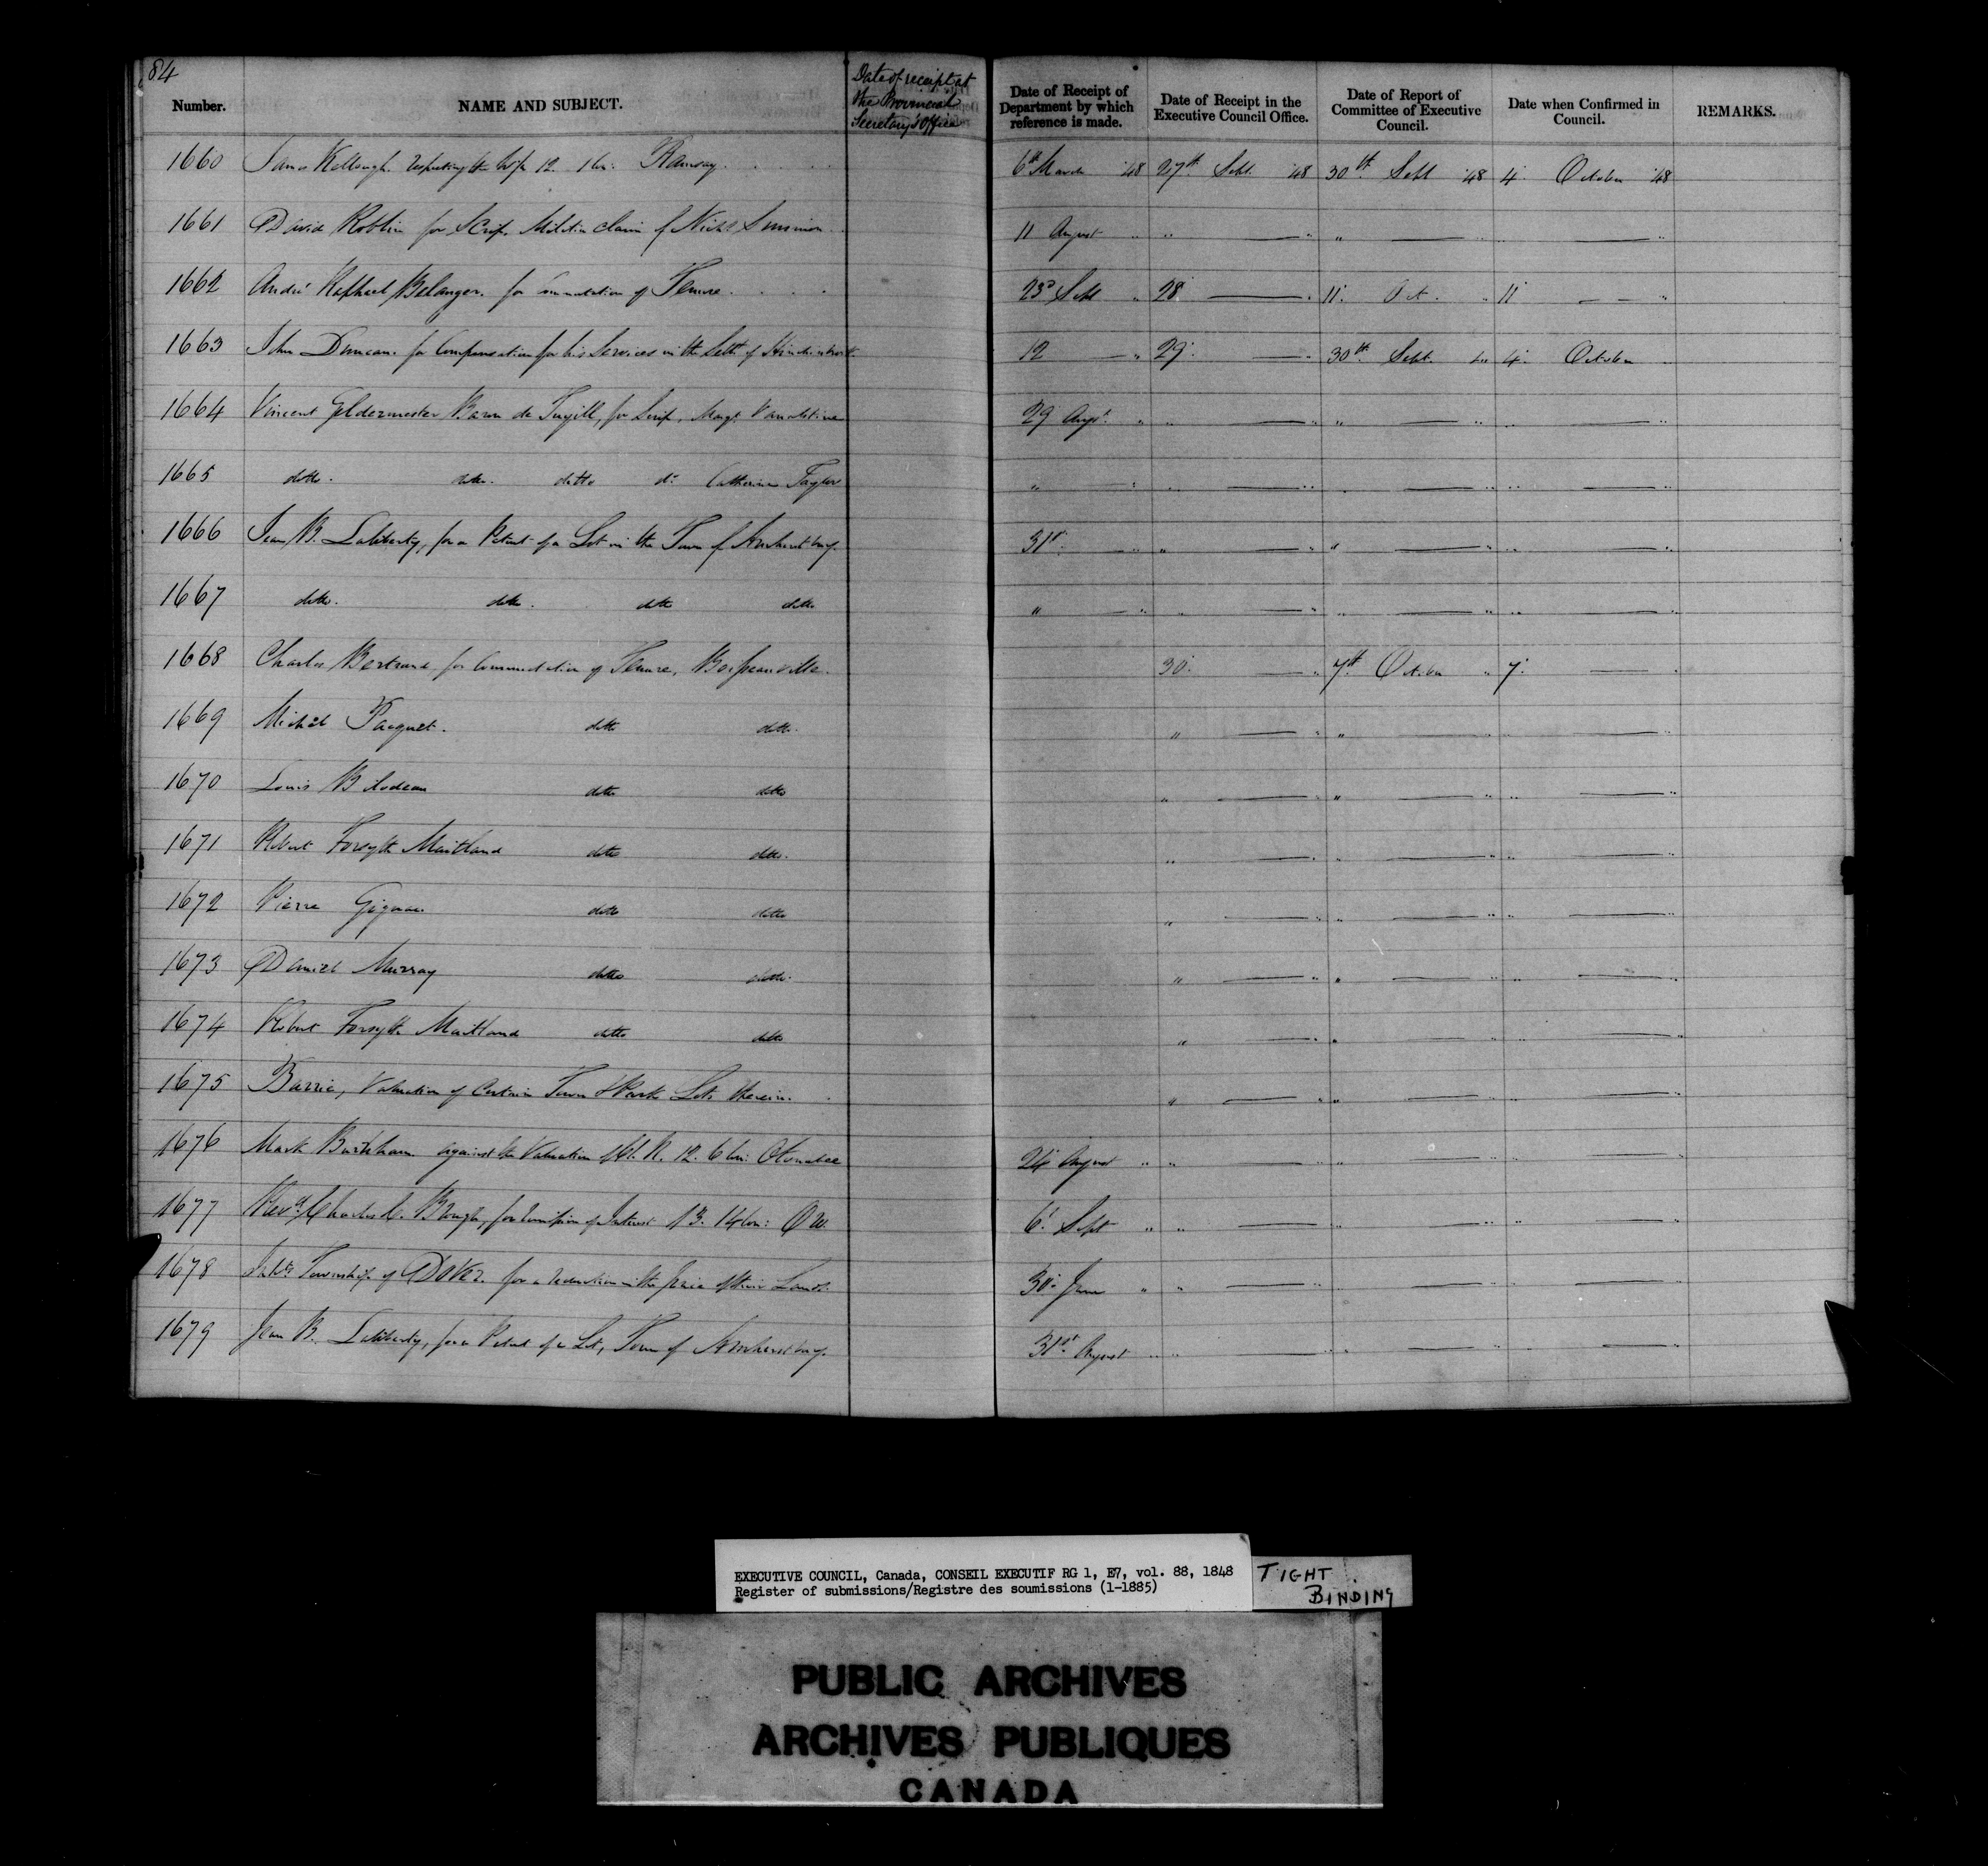 84
Number. NAME AND SUBJECT. Date of receipt at the Provincial Secretary's Office Date of Receipt of Department by which reference is made. Date of Receipt in the Executive Council Office. Date of Report of Committee of Executive Council. Date when Confirmed in Council. REMARKS.
1660 James Kellough respecting the W½ 12. 1 Con: Ramsay. 6th March '48 27th Sept. '48 30th Sept '48 4. October '48
1661 David Roblin for Scrip. Militia claim of Nichs 11 August " " — " " — " " — "
1662 André Raphael Belanger. for Commutation of Tenure. 23d Sept " 28 — " 11. Oct. " 11 — — "
1663 John Duncan. for Compensation for his Services in the Settt of 12 — " 29. — " 30th Sept. " 4. October "
1664 Vincent Gildermester Baron de Tuyll, for Scrip, Margt Vanalstine 29 Augt. " " — " " — " " — "
1665 ditto. ditto. ditto do Catherine Taylor " — " " — " " — " " — "
1666 Jean B. Laliberty, for a Patent of a Lot in the Town of Amherstburg. 31st. — " " — " " — " " — "
1667 ditto. ditto. ditto ditto " — " " — " " — " " — "
1668 Charles Bertrand for Commutation of Tenure, 30. — " 7th October " 7. — "
1669 Michel Pacquet. ditto ditto. " — " " — " " — "
1670 Louis Bilodeau ditto ditto " — " " — " " — "
1671 Robert Forsyth Maitland ditto ditto. " — " " — " " — "
1672 Pierre Gignac ditto ditto " — " " — " " — "
1673 Daniel Murray ditto ditto. " — " " — " " — "
1674 Robert Forsyth Maitland ditto ditto " — " " — " " — "
1675 Barrie, Valuation of Certain Town & Park Lots therein. " — " " — " " — "
1676 Mark Burnham against the Valuation of 12. 6 Con: Otonabee 24 August " " — " " — " " — "
1677 Revd. Charles C. Brough, for remission of Interest 13. 14 Con: 6. Sept " " — " " — " " — "
1678 Inhts Township of Dover. for a reduction in the price of their Lands. 30. June " " — " " — " " — "
1679 Jean B. Laliberty, for a Patent of a Lot, Town of Amherstburg. 31st. August " " — " " — " " — "
EXECUTIVE COUNCIL, Canada, CONSEIL EXECUTIF RG 1, E7, vol. 88, 1848
Register of submissions/Registre des soumissions (1-1885)
TIGHT
BINDING
PUBLIC ARCHIVES
ARCHIVES PUBLIQUES
CANADA